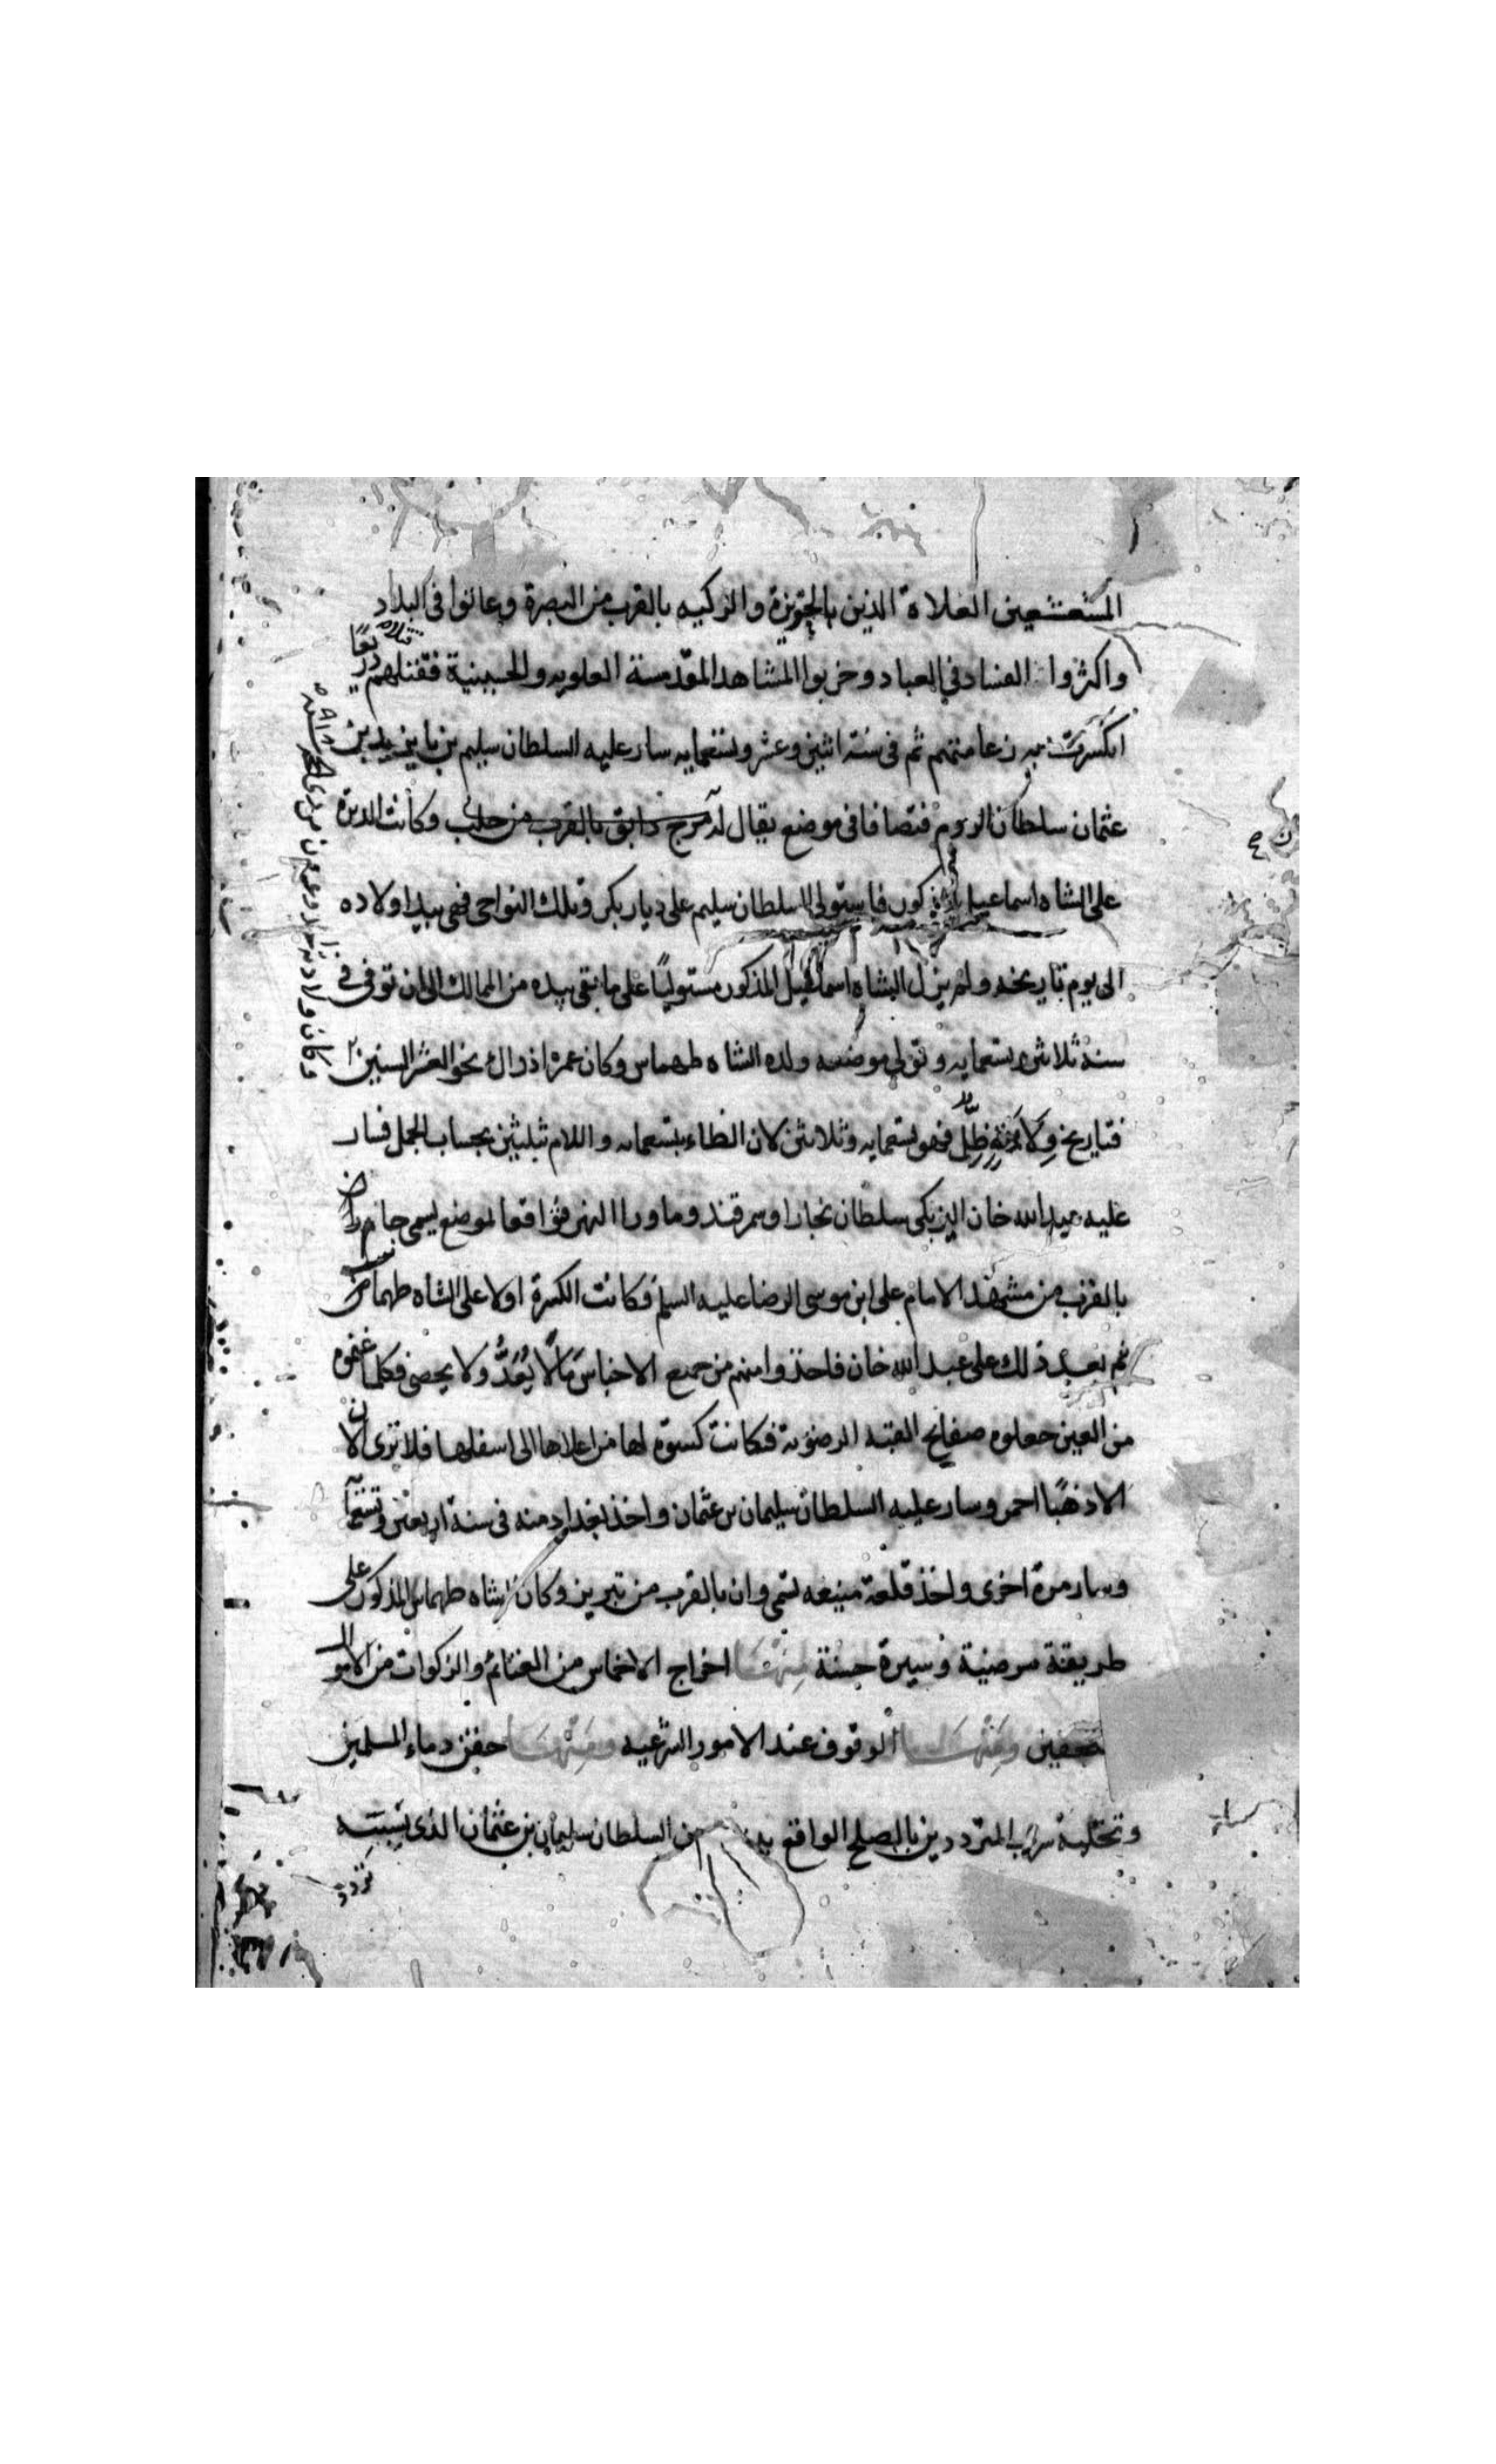 المشعشعين الغلاة الذين بالحويزة والزكيه بالقرب من البصرة وعاثوا في البلاد
واكثروا الفساد في العباد وخربوا المشاهد المقدسة العلويه والحسينية فقتلهم
انكسرت زعامتهم ثم في سنة اثنين وعشر وتسعمايه سار عليه السلطان سليم بن بايزيد بن
عثمان سلطان الروم فتصافا في موضع يقال له مرج دابق بالقرب من حلب وكانت الدبرة
على الشاه اسماعيل المذكور فاستولى السلطان سليم على ديار بكر وتلك النواحي فهي بيد اولاده
الى يوم تاريخه ولم يزل الشاه اسماعيل المذكور مستوليًا على ما بقي بيده من الممالك الى ان توفي في
سنة ثلاثين وتسعمايه وتولى موضعه ولده الشاه طهماس وكان عمره اذ ذاك نحو العشر السنين
فتاريخ ظل فهو تسعمايه وثلاثين لان الظاء بتسعمايه واللام بثلثين بحساب الجمل فسار
عليه عبيد الله خان اليزبكي سلطان بخارا وسمرقند وما ورا النهر فتواقعا لموضع يسمى جام
بالقرب من مشهد الامام علي ابن موسى الرضا عليه السلم فكانت الكسرة اولا على الشاه طهماس
ثم بعد ذلك على عبد الله خان فاخذوا منهم من جميع الاجناس مالًا لا يُعَدُّ ولا يحصى فكلما غنموه
من العين جعلوه صفايح القبه الرضويه فكانت كسوة لها من اعلاها الى اسفلها فلا ترى الان
الا ذهبًا احمر وسار عليه السلطان سليمان بن عثمان واخذ بغداد منه في سنة اربعين وتسعمآ
وسار مرة اخرى واخذ قلعة منيعه تسمى وان بالقرب من تبريز وكان الشاه طهماس المذكور على
طريقة مرضية وسيرة حسنة مِنْهَا اخراج الاخماس من الغنائم والزكوات من الاموال
وَمِنْهَا الوقوف عند الامور الشرعيه وَمِنْهَا حقن دماء المسلمين
وتخلية سرب المترددين بالصلح الواقع من السلطان سليمان بن عثمان الذي بسببه